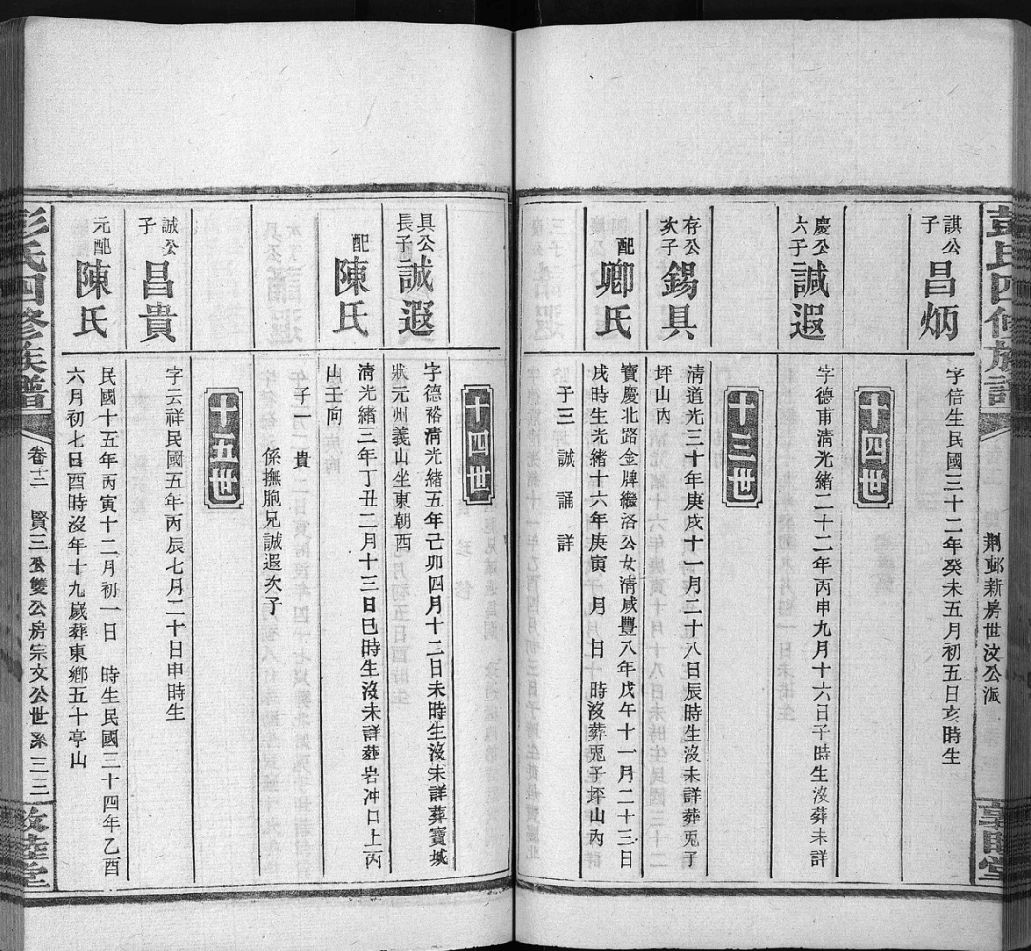 彭氏四修族譜
荆邨新房世汶公派
敦睦堂
諆公子
昌炳
字倍生民國三十二年癸未五月初五日亥時生
十四世
慶公六子
諴遐
字德甫清光緒二十二年丙申九月十六日子時生沒葬未詳
十三世
存公次子
錫具
清道光三十年庚戌十一月二十八日辰時生沒未詳葬兎子
坪山內
配
卿氏
寶慶北路金牌繼洛公女清咸豐八年戊午十一月二十三日
戌時生光緒十六年庚寅 月 日 時沒葬兎子坪山內
子三 誠 誦 詳
十四世
具公長子
誠遐
字德裕清光緒五年己卯四月十二日未時生沒未詳葬寶城
狀元州義山坐東朝西
配
陳氏
清光緒三年丁丑二月十三日巳時生沒未詳葬岩冲口上丙
山壬向
子一 貴
係撫胞兄誠遐次子
十五世
誠公子
昌貴
字云祥民國五年丙辰七月二十日申時生
元配
陳氏
民國十五年丙寅十二月初一日 時生民國三十四年乙酉
六月初七日酉時沒年十九歲葬東鄉五十亭山
彭氏四修族譜
卷十二 賢三公雙公房宗文公世系 三三
敦睦堂